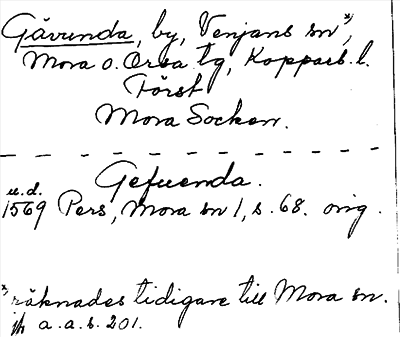 Gävunda, by, Venjans sn *),
Mora o. Orsa tg, Kopparb. l.
Först
Mora Socken.
Gefuenda.
u.d.
1569 Pers, Mora sn 1, s. 68. orig.
*) räknades tidigare till Mora sn.
jfr a.a. s. 201.